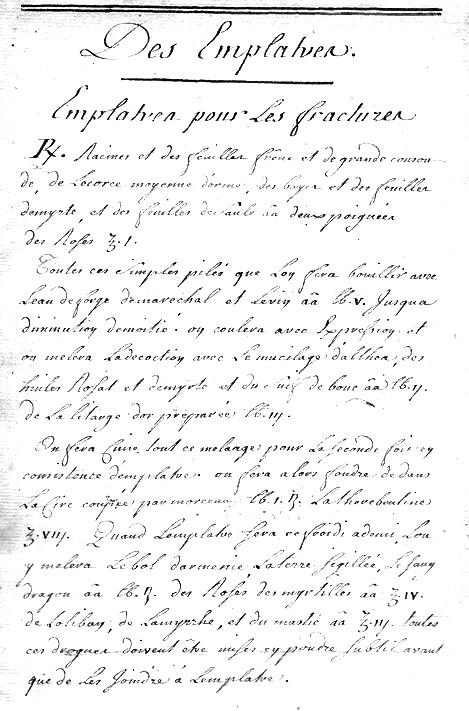 Des Emplatres.
Emplatres pour Les fractures
℞. Racines et des feuilles frêne et de grande consou-
de, de Lecorce moyenne dorme, des bayes et des feuilles
demyrte, et des feuilles de Saule āā deux poignées
des Roses ℥.1.
Toutes ces Simples pilés que Lon fera bouillir avec
Leau deforge demarechal et Levin āā lb.v. Jusqua
diminution demoitié. on coulera avec Expression et
on melera Ladecoction avec Le mucilage dalthea, des
huiles Rosat et demyrte et du Suif de bouc āā lb.ij.
de La litarge dor preparée lb.iij.
On fera Cuire tout ce melange pour La seconde fois en
consistence demplatre. on fera alors fondre de dans
La Cire coupée par morceau lb.1.ß. La therebentine
℥.viij. Quand Lemplatre Sera refroidi ademi Lon
y melera Lebol darmenie Laterre sigillée, Le sang
dragon āā lb.ß. des Roses des myrtilles āā ℥.iv.
de Loliban, de Lamyrrhe, et du mastic āā ℥.iij. toutes
ces drogues doivent être mises en poudre subtil avant
que de Les Joindre à Lemplatre.